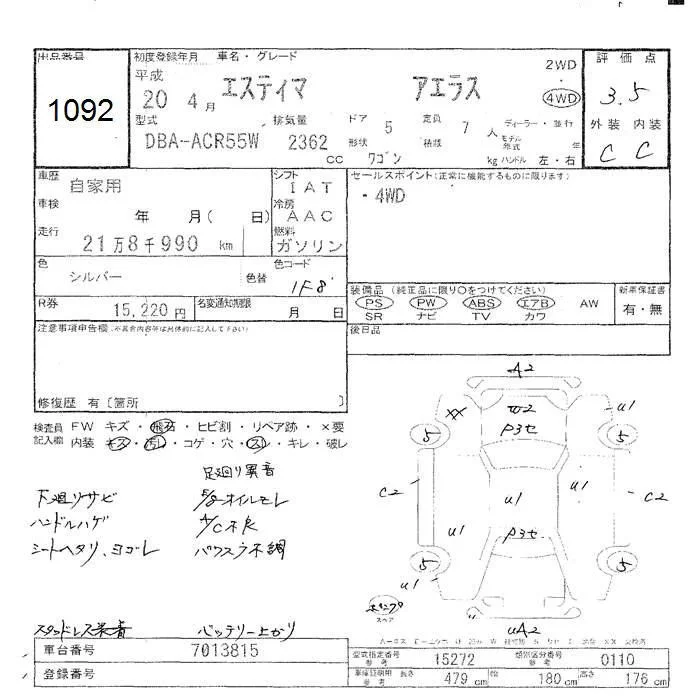 出品番号 初度登録年月 車名・グレード 2WD 評価点
1092 平成 20 4月 エスティマ アエラス 4WD 3.5
型式 排気量 ドア 5 定員 7人 ディーラー・並行 外装 内装
DBA-ACR55W 2362cc 形状 ワゴン 積載 kg モデル年式 年 ハンドル 左・右 C C
車歴 自家用 シフト IAT セールスポイント(正常に機能するものに限ります)
車検 年 月( 日) 冷房 AAC ・4WD
走行 21万8千990km 燃料 ガソリン
色 シルバー 色替 色コード 1F8
装備品 (純正品に限り○をつけてください) 新車保証書
PS PW ABS エアB AW 有・無
SR ナビ TV カワ
R券 15,220円 名変通知期限 月 日
後日品
注意事項申告欄
修復歴 有〔箇所 〕
検査員記入欄 FW キズ・飛石・ヒビ割・リペア跡・×要
内装 キズ・汚れ・コゲ・穴・スレ・キレ・破レ
足廻り異音
下廻リサビ
ハンドルハゲ A/C不良
シートヘタリ、ヨゴレ パワスラ不調
スタッドレス装着 バッテリー上がり
A2
XX W2 U1
P3セ
5 5
C2 U1 U1 C2
U1 P3セ
5 5
U1
スペア
UA2
車台番号 7013815
登録番号
型式指定番号 参考 15272 類別区分番号 参考 0110
車検証期用 参考 長さ 479cm 幅 180cm 高さ 176cm